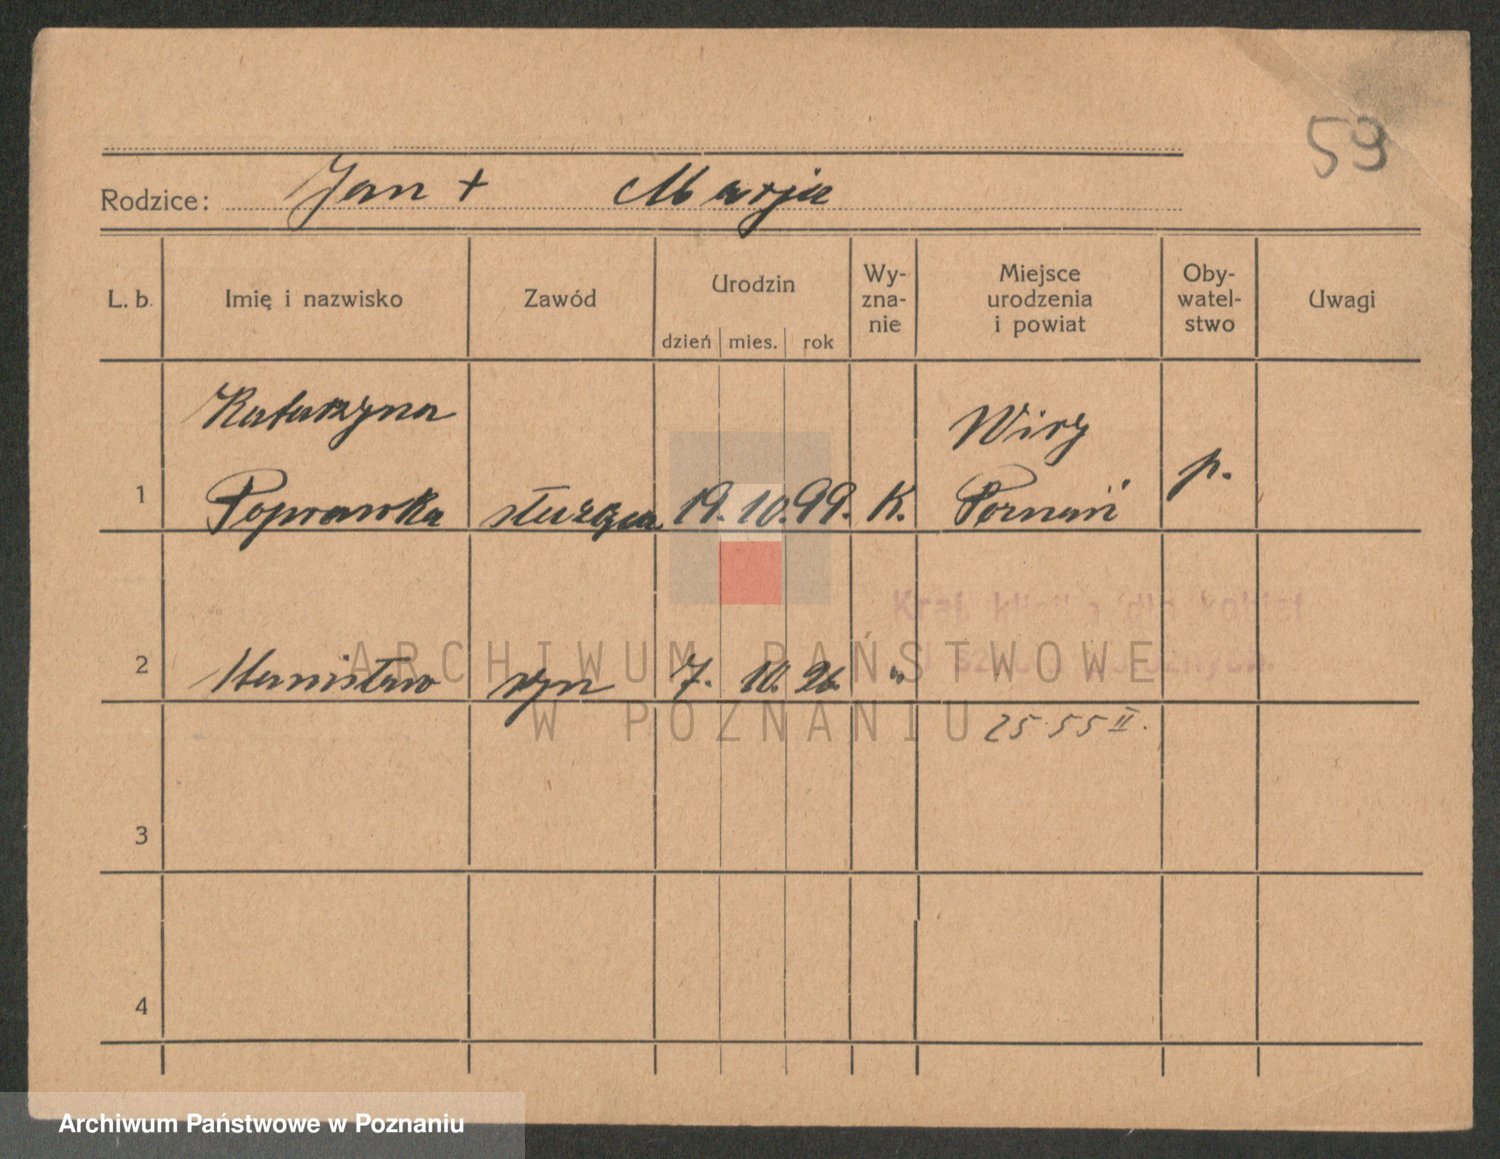 59
Rodzice: Jan + Marja
L. b. Imię i nazwisko Zawód Urodzin dzień mies. rok Wy-zna-nie Miejsce urodzenia i powiat Oby-watel-stwo Uwagi
Katarzyna Wiry
1 Poprawka służąca 19. 10. 99. K. Poznań p.
Kraj. klinika dla kobiet
2 Stanisław syn 7. 10. 26. "
25 55 II.
3
4
ARCHIWUM PAŃSTWOWE
W POZNANIU
Archiwum Państwowe w Poznaniu